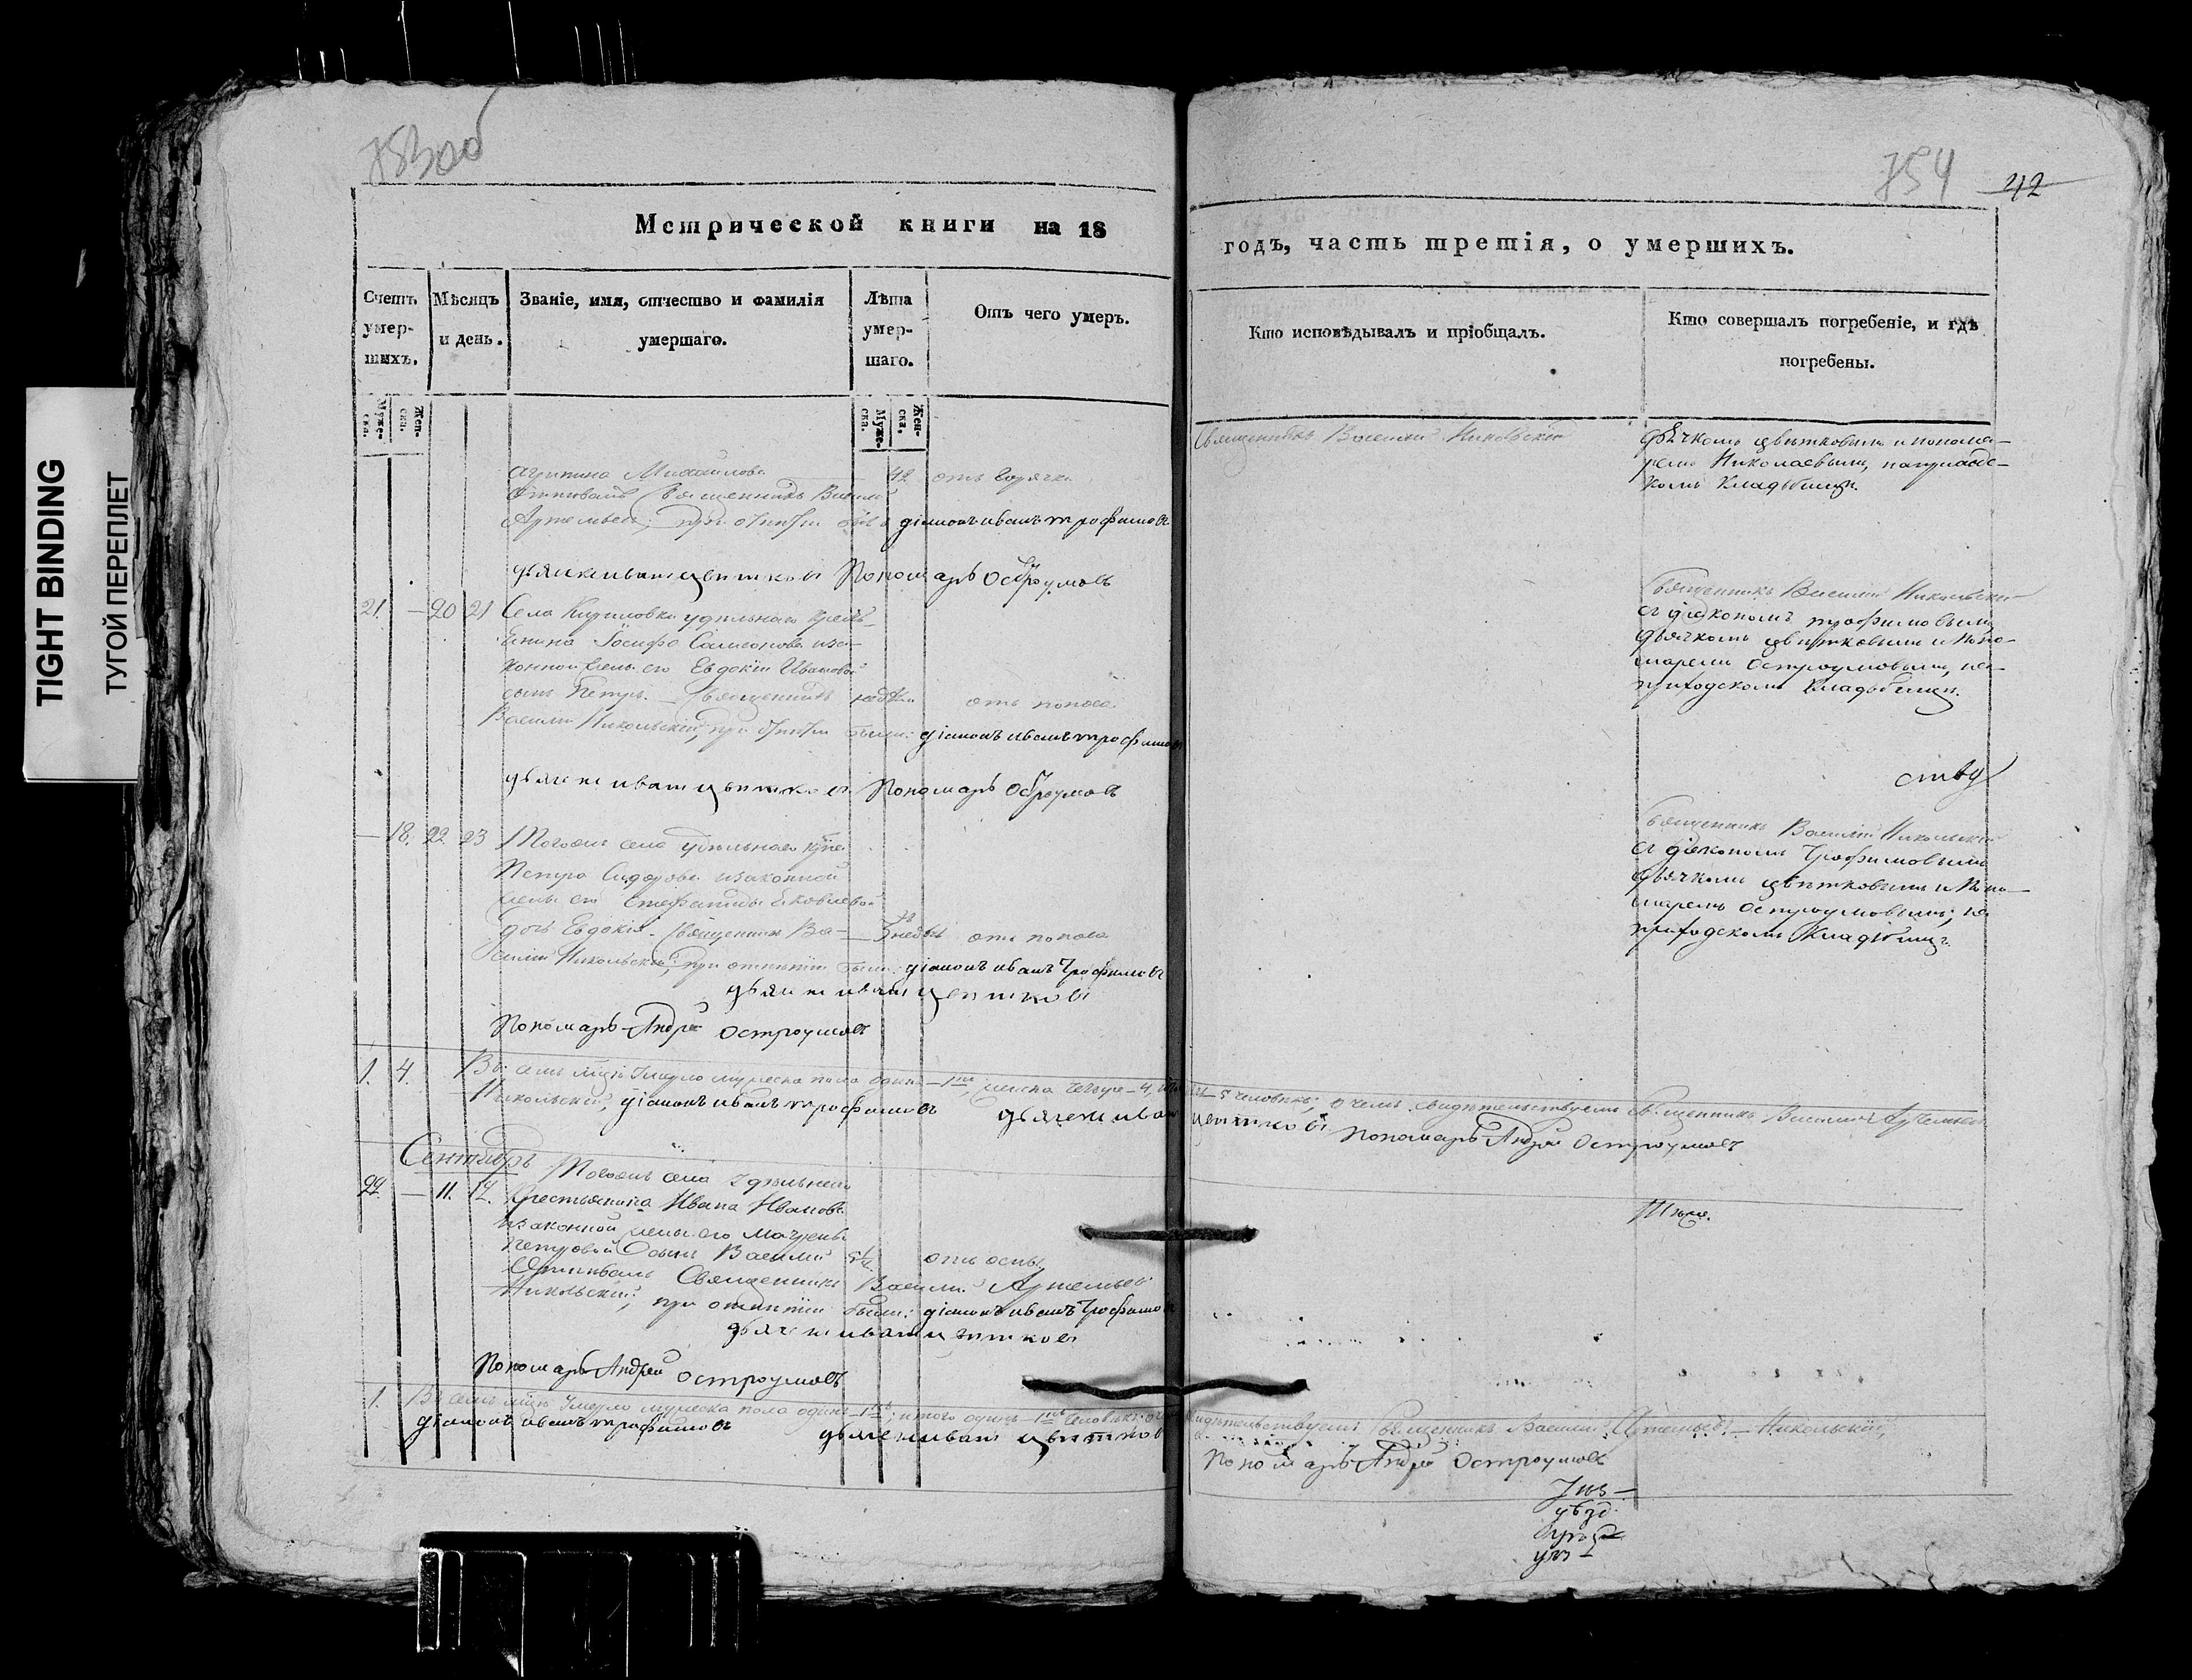 TIGHT BINDING
ТУГОЙ ПЕРЕПЛЕТ
753об
754 42
Метрической книги на 18
годъ, часть третія, о умершихъ.
Счетъ умер-шихъ.
Мѣсяцъ и день.
Званіе, имя, отчество и фамилія умершаго.
Лѣта умер-шаго.
Отъ чего умеръ.
Кто исповѣдывалъ и пріобщалъ.
Кто совершалъ погребеніе, и гдѣ погребены.
Муже-ска.
Жен-ска.
Муже-ска.
Жен-ска.
Михайлова 42 отъ горячки
Священникъ Василій
Артемьевъ при діаконъ иванъ трофимовъ
дьячекъ иванъ цвѣтковъ Пономарь Остроумовъ
Священникъ Василій Никольскій
дьячкомъ цвѣтковымъ и понома-
ремъ Николаевымъ, на приходс-
комъ кладбищѣ.
21 — 20 21 Села удѣльнаго кресть-
янина Іосифа Самсонова иза-
конной жены его Евдокіи Ивановой
сынъ Петръ. — Священникъ отъ поноса
Василій Никольскій, при были: діаконъ иванъ трофимовъ
дьячекъ иванъ цвѣтковъ Пономарь Остроумовъ
Священникъ Василій Никольскій
съ діакономъ трофимовымъ
дьячкомъ цвѣтковымъ и поно-
маремъ Остроумовымъ, на
приходскомъ кладбищѣ.
— 18. 22 23 Тогожъ села удѣльнаго
Петра Сидорова изаконной
жены его Яковлевой
дочь Евдокія. Священникъ Ва- 3 недѣл отъ поноса
силій Никольскій, при отпѣтіи были: діаконъ иванъ Трофимовъ
дьячекъ иванъ цвѣтковъ
Пономарь Андрей Остроумовъ
Священникъ Василій Никольскій
съ діакономъ Трофимовымъ
дьячкомъ цвѣтковымъ и Поно-
маремъ Остроумовымъ; на
приходскомъ кладбищѣ.
1. 4. Въ семъ мцѣ умерло мужеска пола одинъ — 1, женска четыре — 4, 5 человѣкъ; о чемъ свидѣтельствуемъ Священникъ Василій Артемьевъ
Никольскій, діаконъ иванъ трофимовъ дьячекъ иванъ цвѣтковъ Пономарь Андрей Остроумовъ
Сентябрь
22. — 11. 12. Тогожъ села удѣльнаго
крестьянина Ивана Иванова
изаконной жены его Матрены
Петровой сынъ Василій отъ оспы
Отпѣвалъ Священникъ Василій Артемьевъ
Никольскій, при отпѣтіи были: діаконъ иванъ Трофимовъ
дьячекъ иванъ цвѣтковъ
Пономарь Андрей Остроумовъ
Тѣже.
1. Въ семъ мцѣ умерло мужеска пола одинъ — 1; итого одинъ — 1 человѣкъ; о чемъ свидѣтельствуемъ Священникъ Василій Артемьевъ — Никольскій,
діаконъ иванъ трофимовъ дьячекъ иванъ цвѣтковъ Пономарь Андрей Остроумовъ